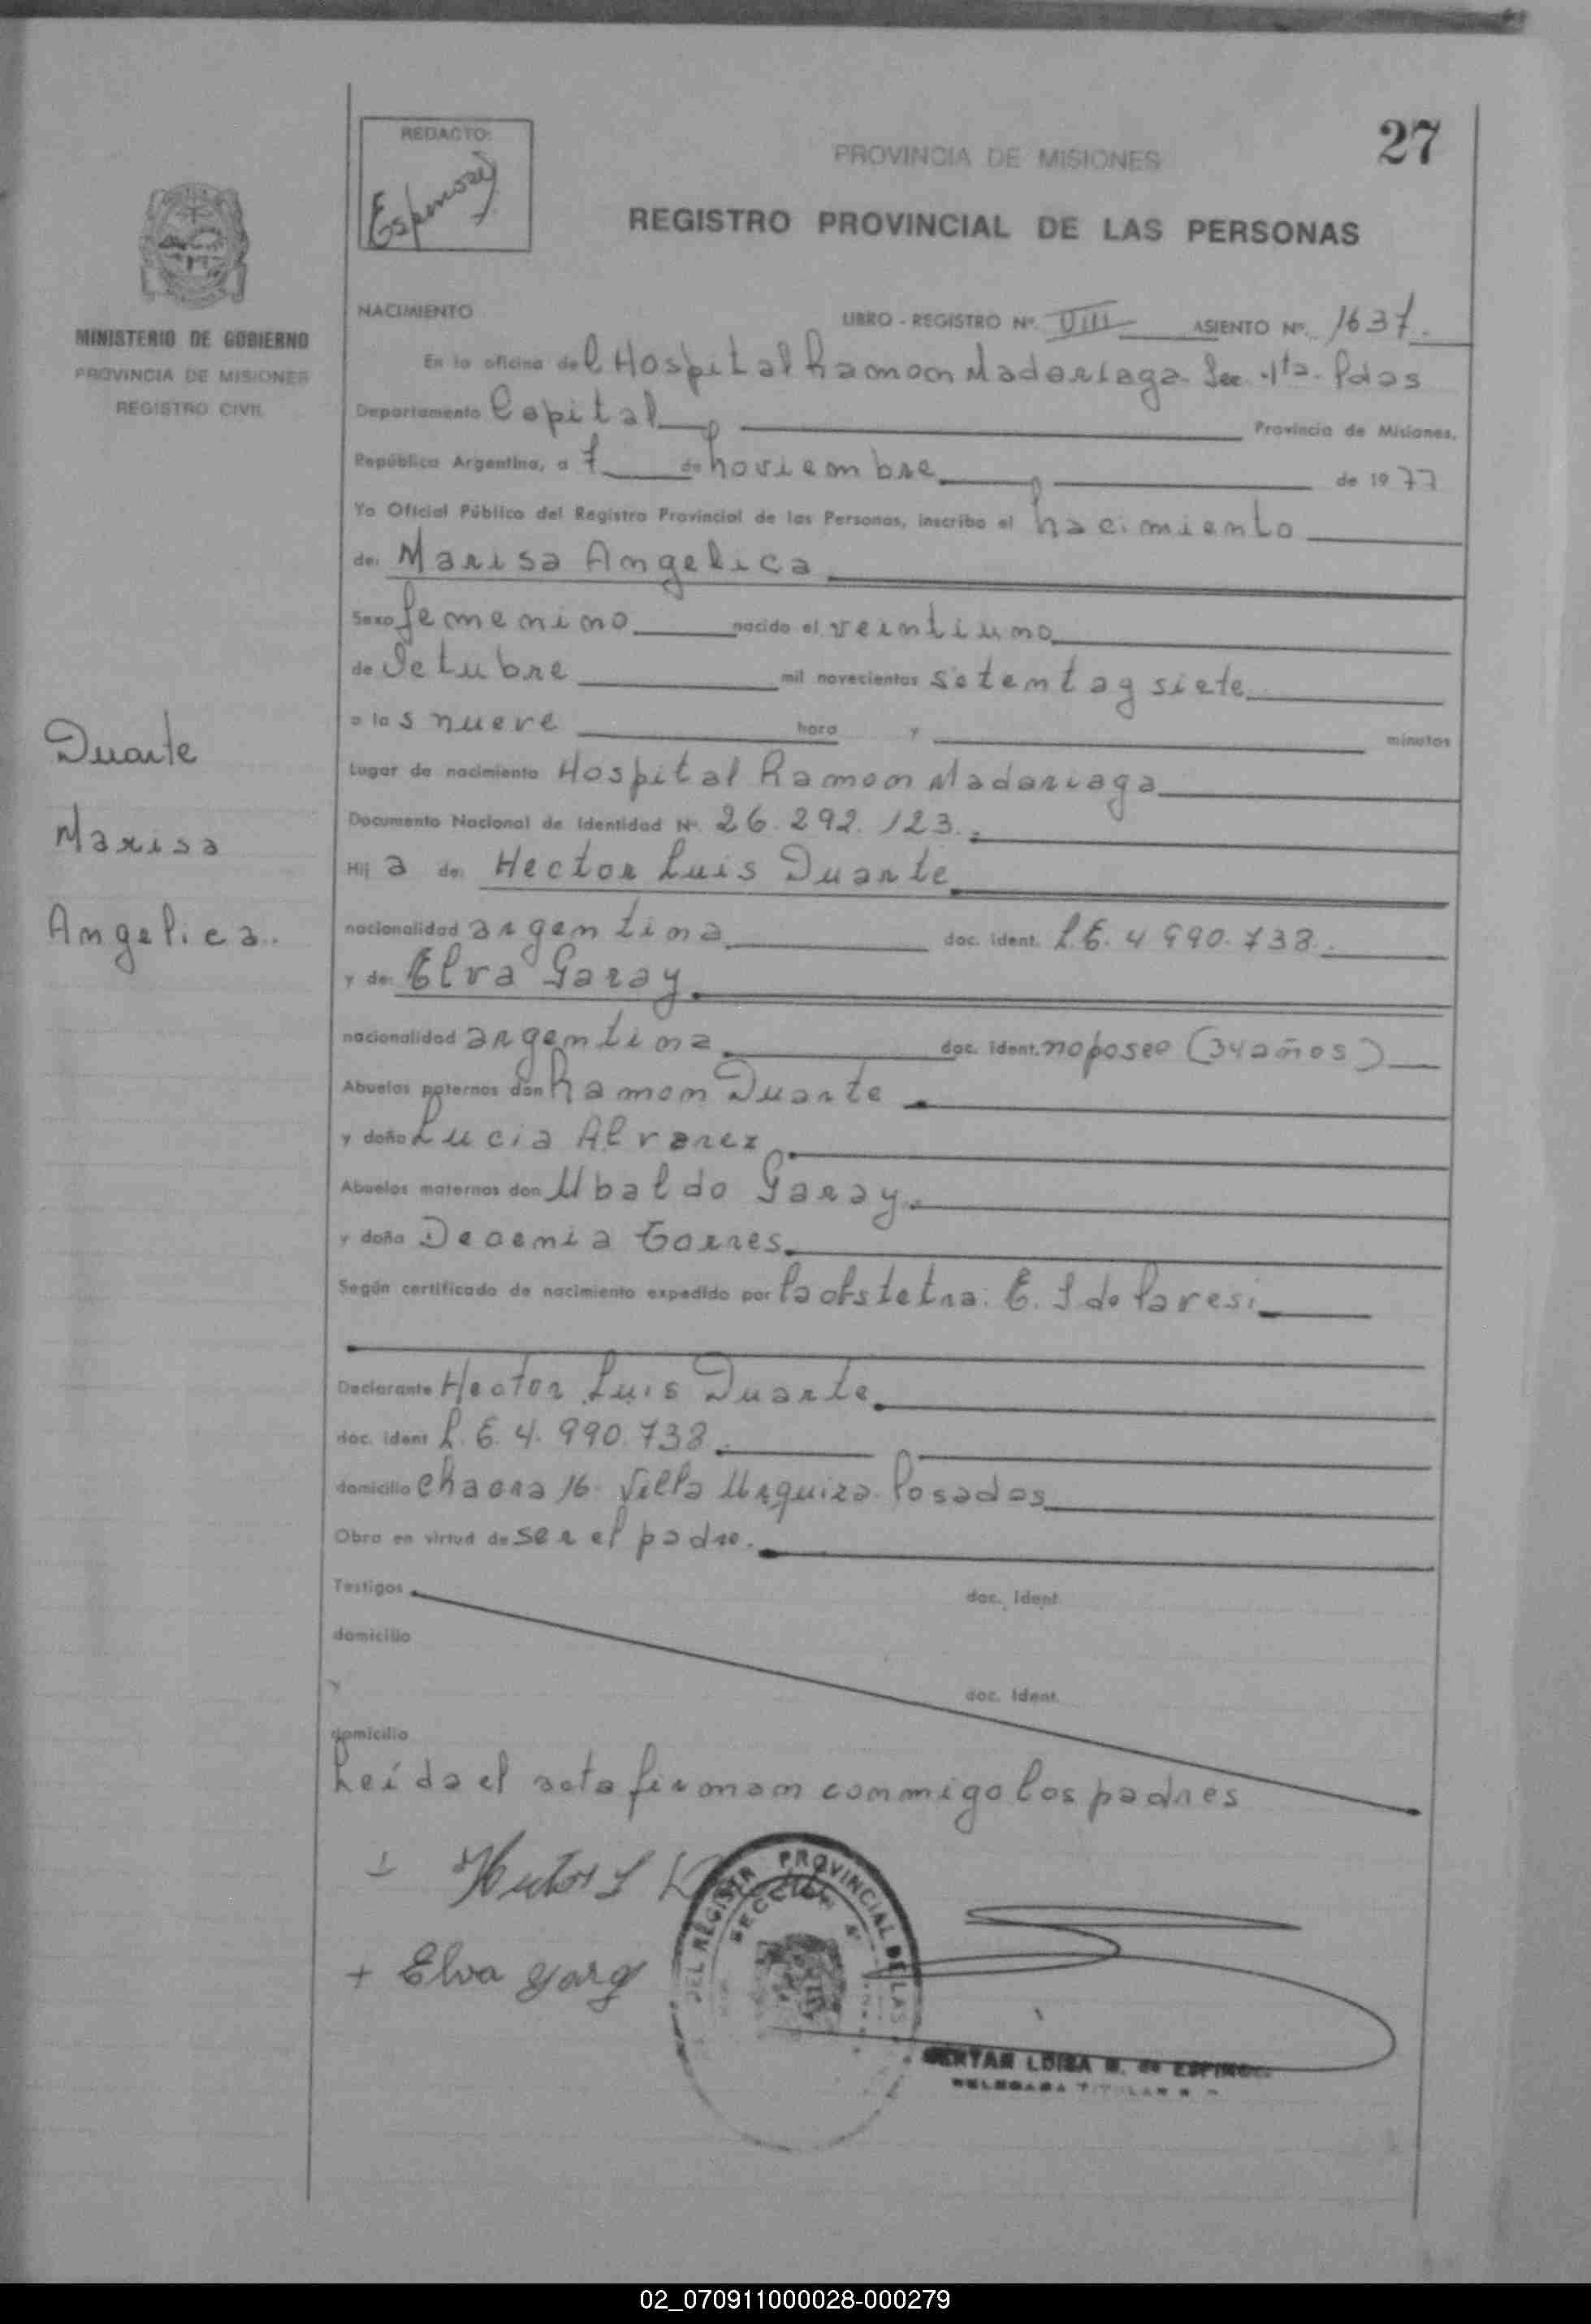 27
REDACTO:
PROVINCIA DE MISIONES
REGISTRO PROVINCIAL DE LAS PERSONAS
MINISTERIO DE GOBIERNO
PROVINCIA DE MISIONES
REGISTRO CIVIL
NACIMIENTO LIBRO - REGISTRO Nº. VIII ASIENTO Nº. 1637.
En la oficina del Hospital Ramon Madariaga. Sec. 4ta. Pdas
Departamento Capital Provincia de Misiones,
República Argentina, a 7 de noviembre de 1977
Yo Oficial Público del Registro Provincial de las Personas, inscribo el nacimiento
de: Marisa Angelica
Sexo femenino nacido el veintiuno
de Octubre mil novecientos setenta y siete
a las nueve hora y minutos
Lugar de nacimiento Hospital Ramon Madariaga
Documento Nacional de Identidad Nº. 26.292.123.
Hija de: Hector Luis Duarte
nacionalidad argentina doc. ident. L.E. 4.990.738.
y de: Elva Garay
nacionalidad argentina doc. ident. no posee (34 años)
Abuelos paternos don Ramon Duarte
y doña Lucia Alvarez
Abuelos maternos don Ubaldo Garay
y doña Torres
Según certificado de nacimiento expedido por la obstetra. E. S. de
Declarante Hector Luis Duarte
doc. ident L.E. 4.990.738.
domicilio chacra 16. Villa Urquiza. Posadas
Obra en virtud de ser el padre.
Testigos doc. ident.
domicilio
y doc. ident.
domicilio
Leída el acta firman conmigo los padres
Duarte
Marisa
Angelica.
Hector L
+ Elva Garay
DEL REGISTR PROVINCIAL DE LAS
SECCION
LUISA
TITULAR
02_070911000028-000279